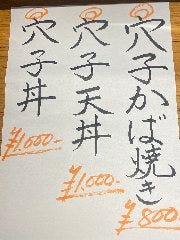 穴子かば焼き
¥800
穴子天丼
¥1,000-
穴子丼
¥1,000-